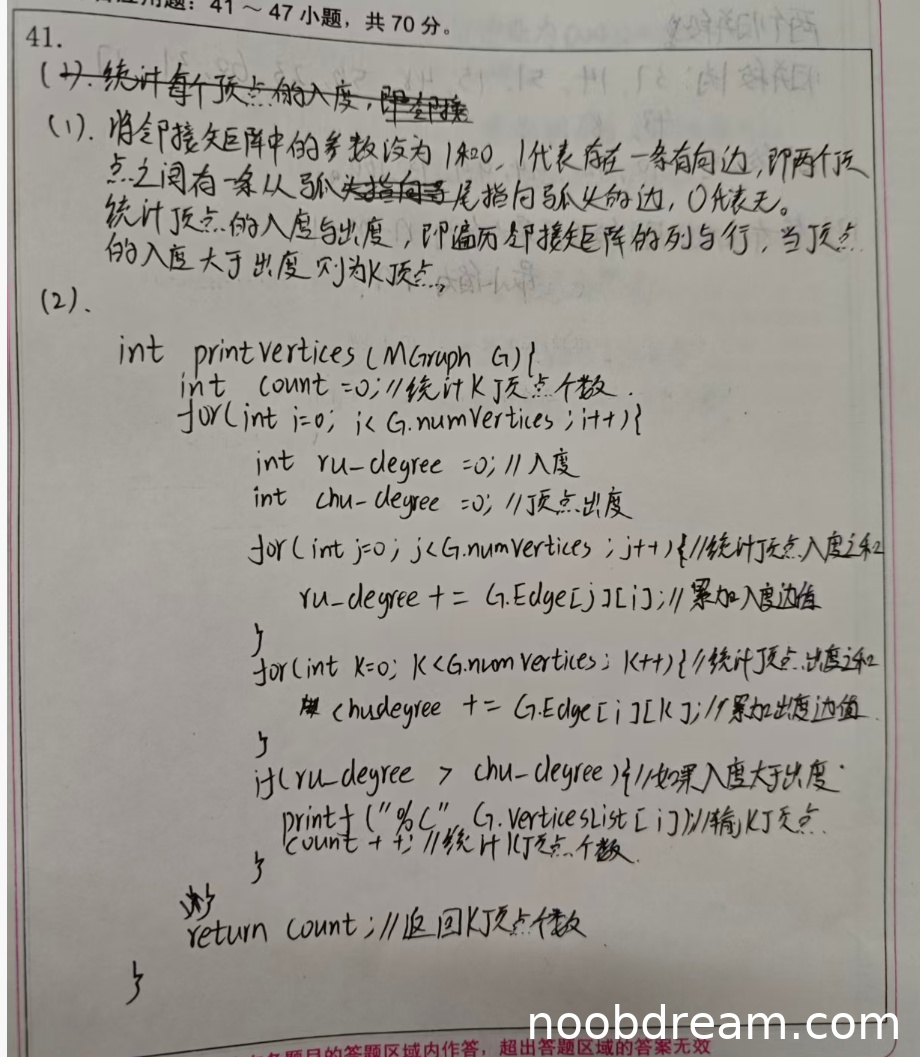 应用题：41～47小题，共70分。
41.
(1). 统计每个顶点的入度，即邻接
(1). 将邻接矩阵中的参数设为1和0，1代表存在一条有向边，即两个顶
点之间有一条从弧尾指向弧头的边，0代表无。
统计顶点的入度与出度，即遍历邻接矩阵的列与行，当顶点
的入度大于出度则为K顶点。
(2).
int printVertices(MGraph G){
int count=0;//统计K顶点个数.
for(int i=0; i<G.numVertices;i++){
int ru_degree=0;//入度
int chu_degree=0;//顶点出度
for(int j=0; j<G.numVertices;j++){//统计顶点入度之和
ru_degree+=G.Edge[j][i];//累加入度边值
}
for(int k=0; k<G.numVertices; k++){//统计顶点出度之和
chudegree+=G.Edge[i][k];//累加出度边值
}
if(ru_degree > chu_degree){//如果入度大于出度
printf("%c", G.verticesList[i]);//输K顶点
count++;//统计K顶点个数
}
}
return count;//返回K顶点个数
}
各题目的答题区域内作答，超出答题区域的答案无效
noobdream.com